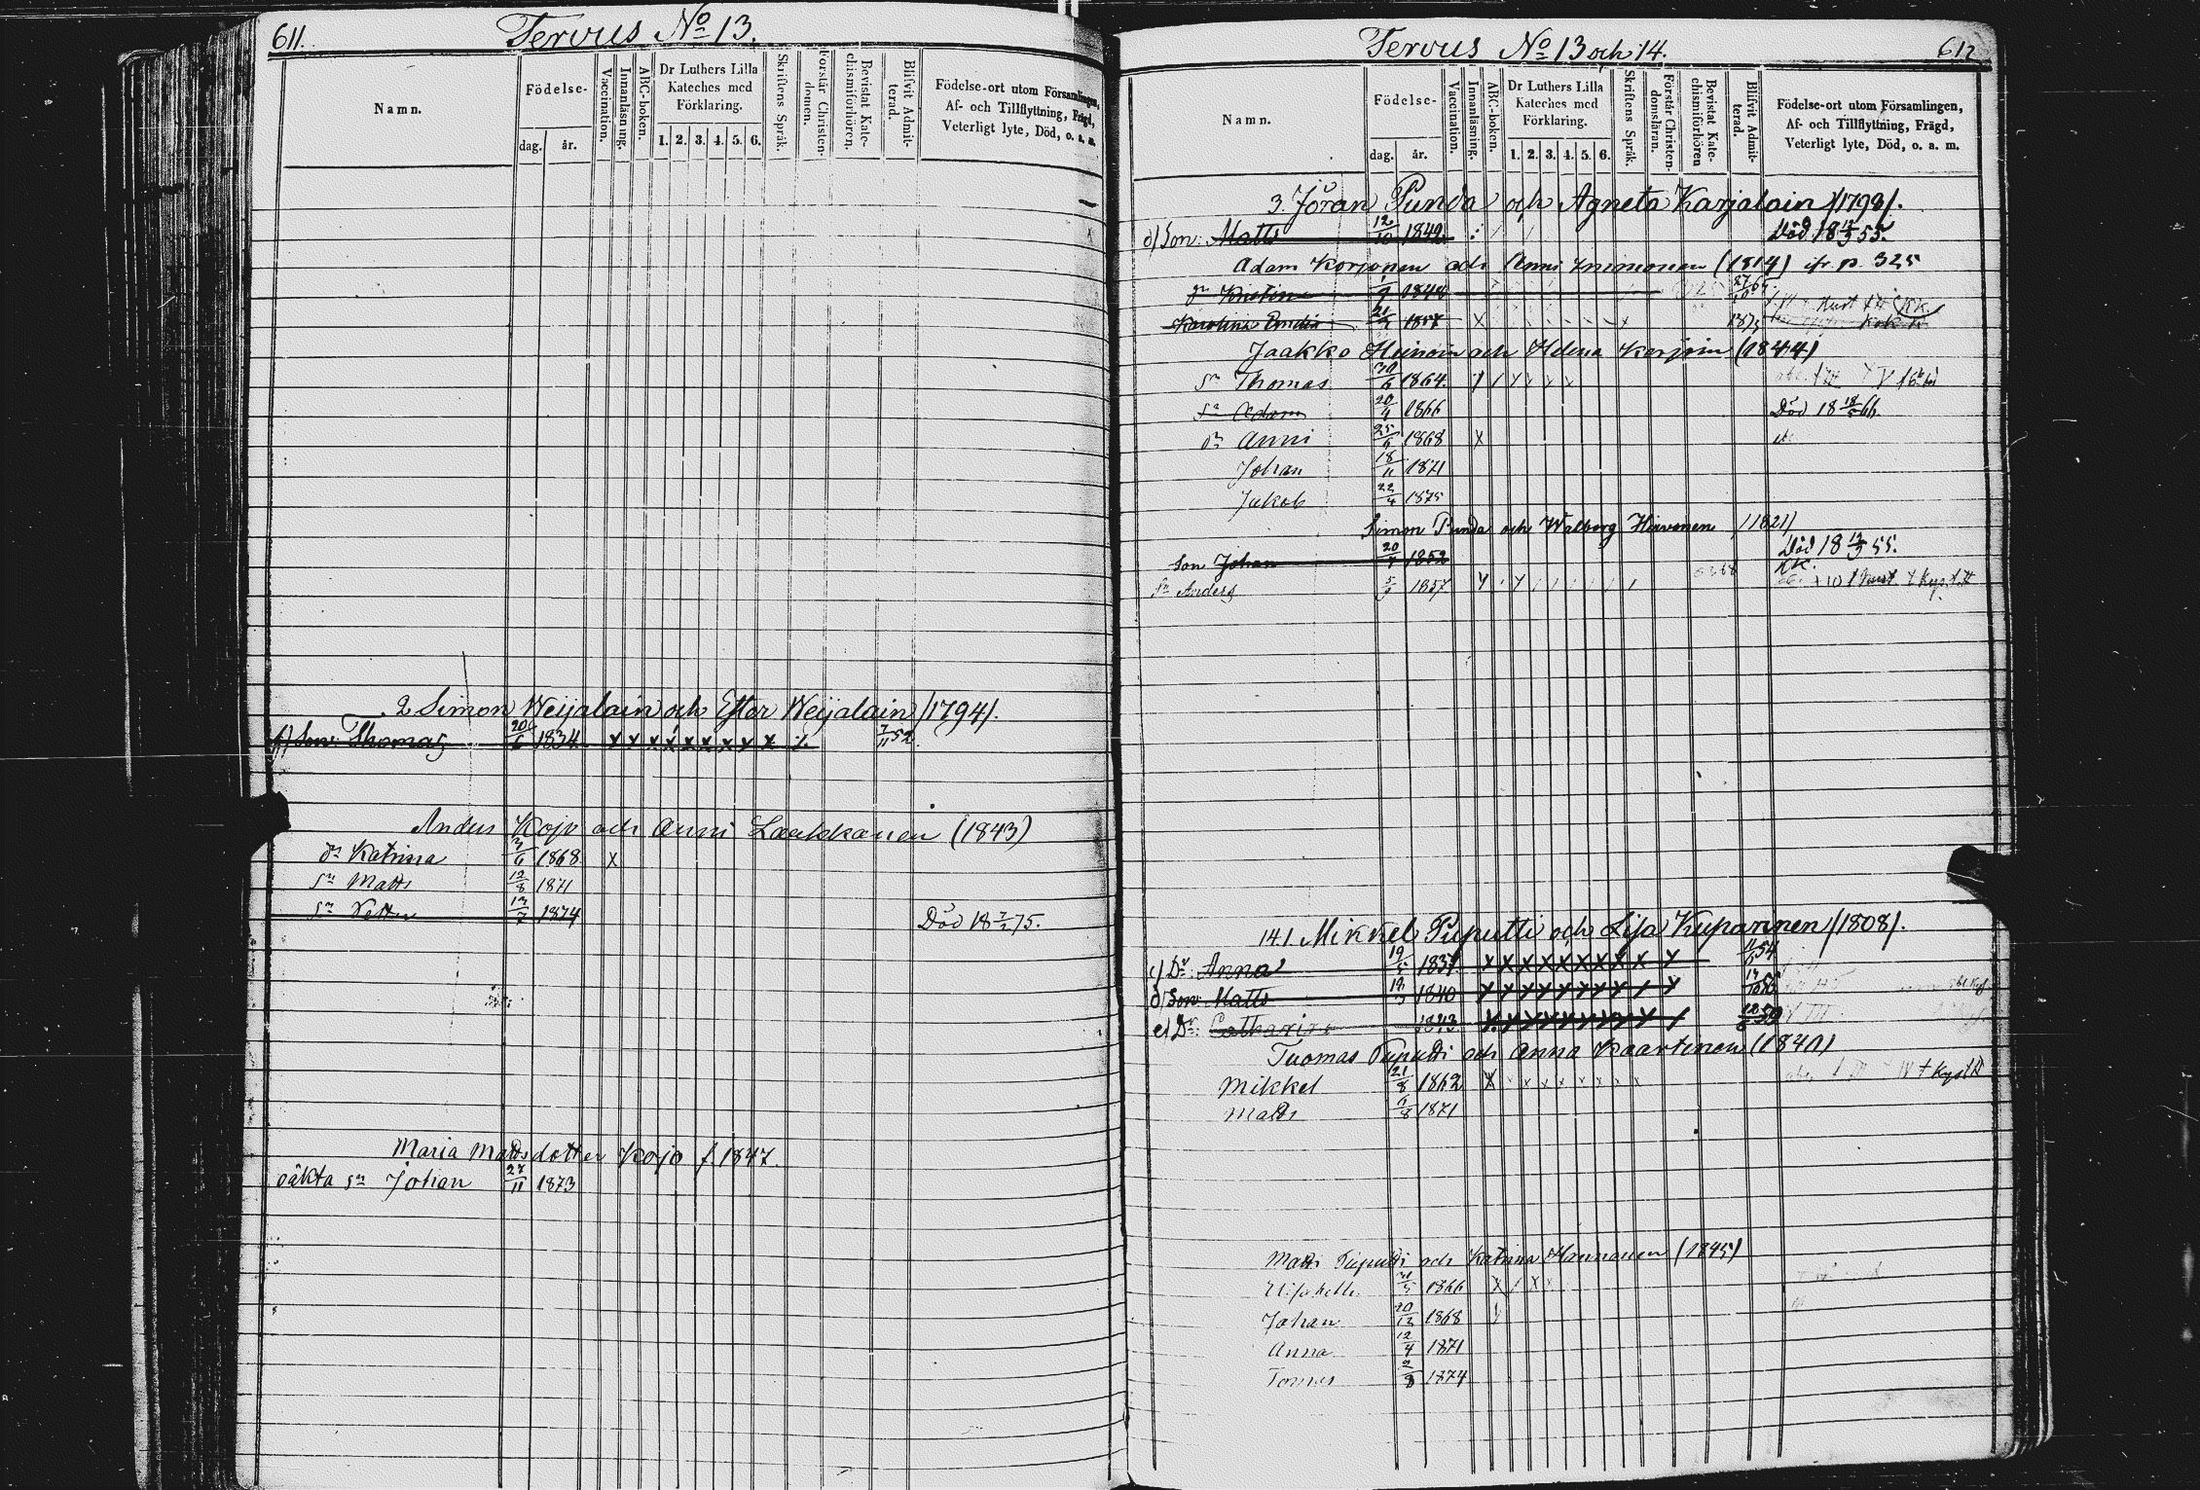 611.
Tervus No 13.
Namn.
Födelse-
dag.
år.
Vaccination.
Innanläsning.
ABC-boken.
Dr Luthers Lilla Kateches med Förklaring.
1. 2. 3. 4. 5. 6.
Skriftens Språk.
Förstår Christendomen.
Bevistat Katechismiförhören.
Blifvit Admitterad.
Födelse-ort utom Församlingen,
Af- och Tillflyttning, Frägd,
Veterligt lyte, Död, o. a. m.
2 Simon Weijalain och Ester Weijalain /1794/.
f) Son: Thomas 20/6 1834 x x x x x x x x x 7/11 52
Anders Kojo och Anni Laakkanen (1843)
dr Katrina 3/6 1868 x
sn Matts 12/8 1871
sn Petter 13/7 1874 Död 18 7/2 75.
Maria Mattsdotter Kojo f. 1847.
oäkta sn Johan 27/11 1873
Tervus No 13 och 14.
612
Namn.
Födelse-
dag.
år.
Vaccination.
Innanläsning.
ABC-boken.
Dr Luthers Lilla Kateches med Förklaring.
1. 2. 3. 4. 5. 6.
Skriftens Språk.
Förstår Christendomsläran.
Bevistat Katechismiförhören
Blifvit Admitterad.
Födelse-ort utom Församlingen,
Af- och Tillflyttning, Frägd,
Veterligt lyte, Död, o. a. m.
3. Jöran Punda och Agneta Karjalain /1798/.
d) Son: Matts 12/10 1842 Död 18 55.
Adam Korjonen och Anni Immonen (1814) p. 325
dr Kristina 1840
Karolina Emilia 21 1857 x 1873
Jaakko Heinoin och Helena Korjoin (1844)
sn Thomas 30/6 1864
sn Adam 20/4 1866 Död 18 18/5 66.
dr Anni 25/6 1868 x
Johan 18/11 1871
Jakob 22/4 1875
Simon Punda och Walborg Hirvonen /1821/
Son Johan 20/7 1852 Död 18 55.
sn Anders 5 1857
14.1 Mikkel Puputti och Lisa Kuparinen /1808/.
c) Dr: Anna 19/5 1837 x x x x x x x x x x 11/6 54
d) Son Matts 1840
e) Dr: Catharina 1843
Tuomas Puputti och Anna Kaartinen (1840)
Mikkel 21/8 1862 x x x x x x x x
Matts 6/8 1871
Matts Puputti och Katrina Hannonen (1845)
Elisabeth 31/5 1866
Johan 20/12 1868
Anna 12/4 1871
Tomas 2/8 1874